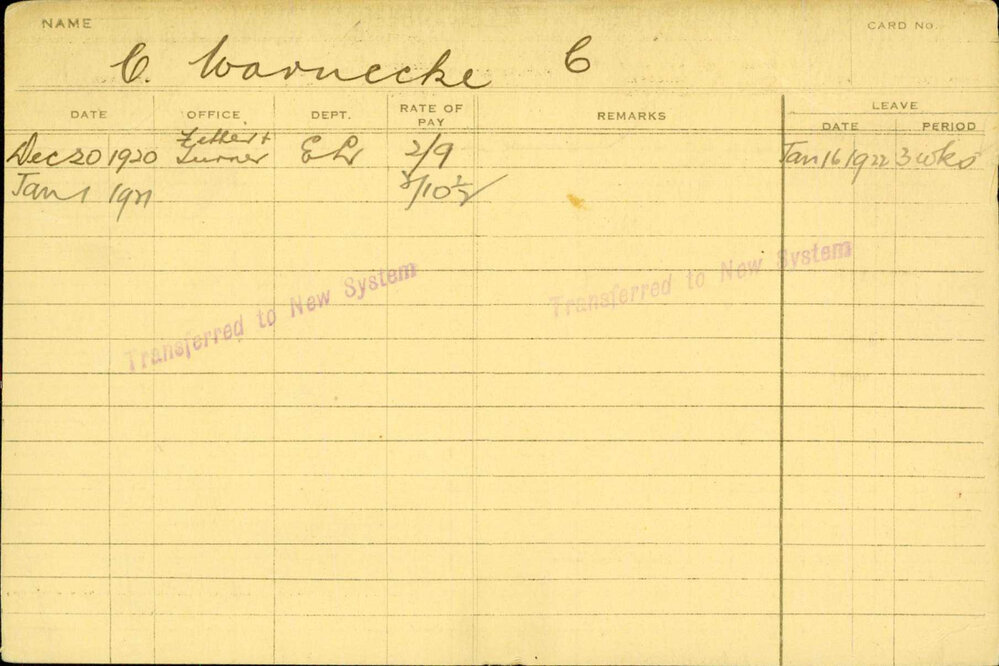 NAME
CARD No.
C. Warnecke C
DATE OFFICE DEPT. RATE OF PAY REMARKS LEAVE
DATE PERIOD
Fitter +
Dec 20 1920 Turner EL 2/9 Jan 16 1922 3 wks
Jan 1 1921 2/10 1/2
Transferred to New System
Transferred to New System